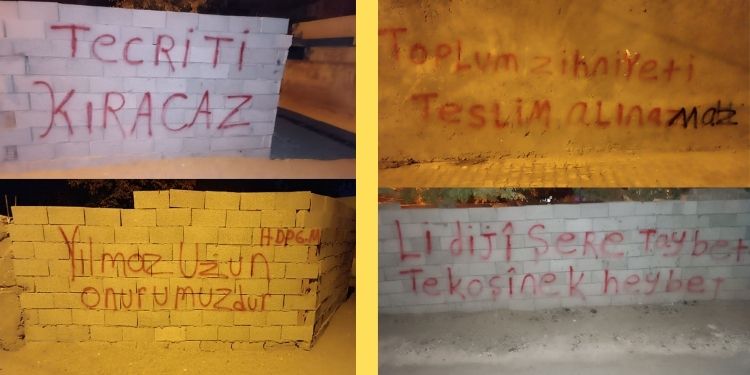 TecRiTi
KIRACAZ
TOPLUM zihniyeti
TesLiM aLınamaz
H.DPG.M
Yılmaz Uzun
onurumuzdur
Li dijî Şere Taybet
Tekoşînek heybet